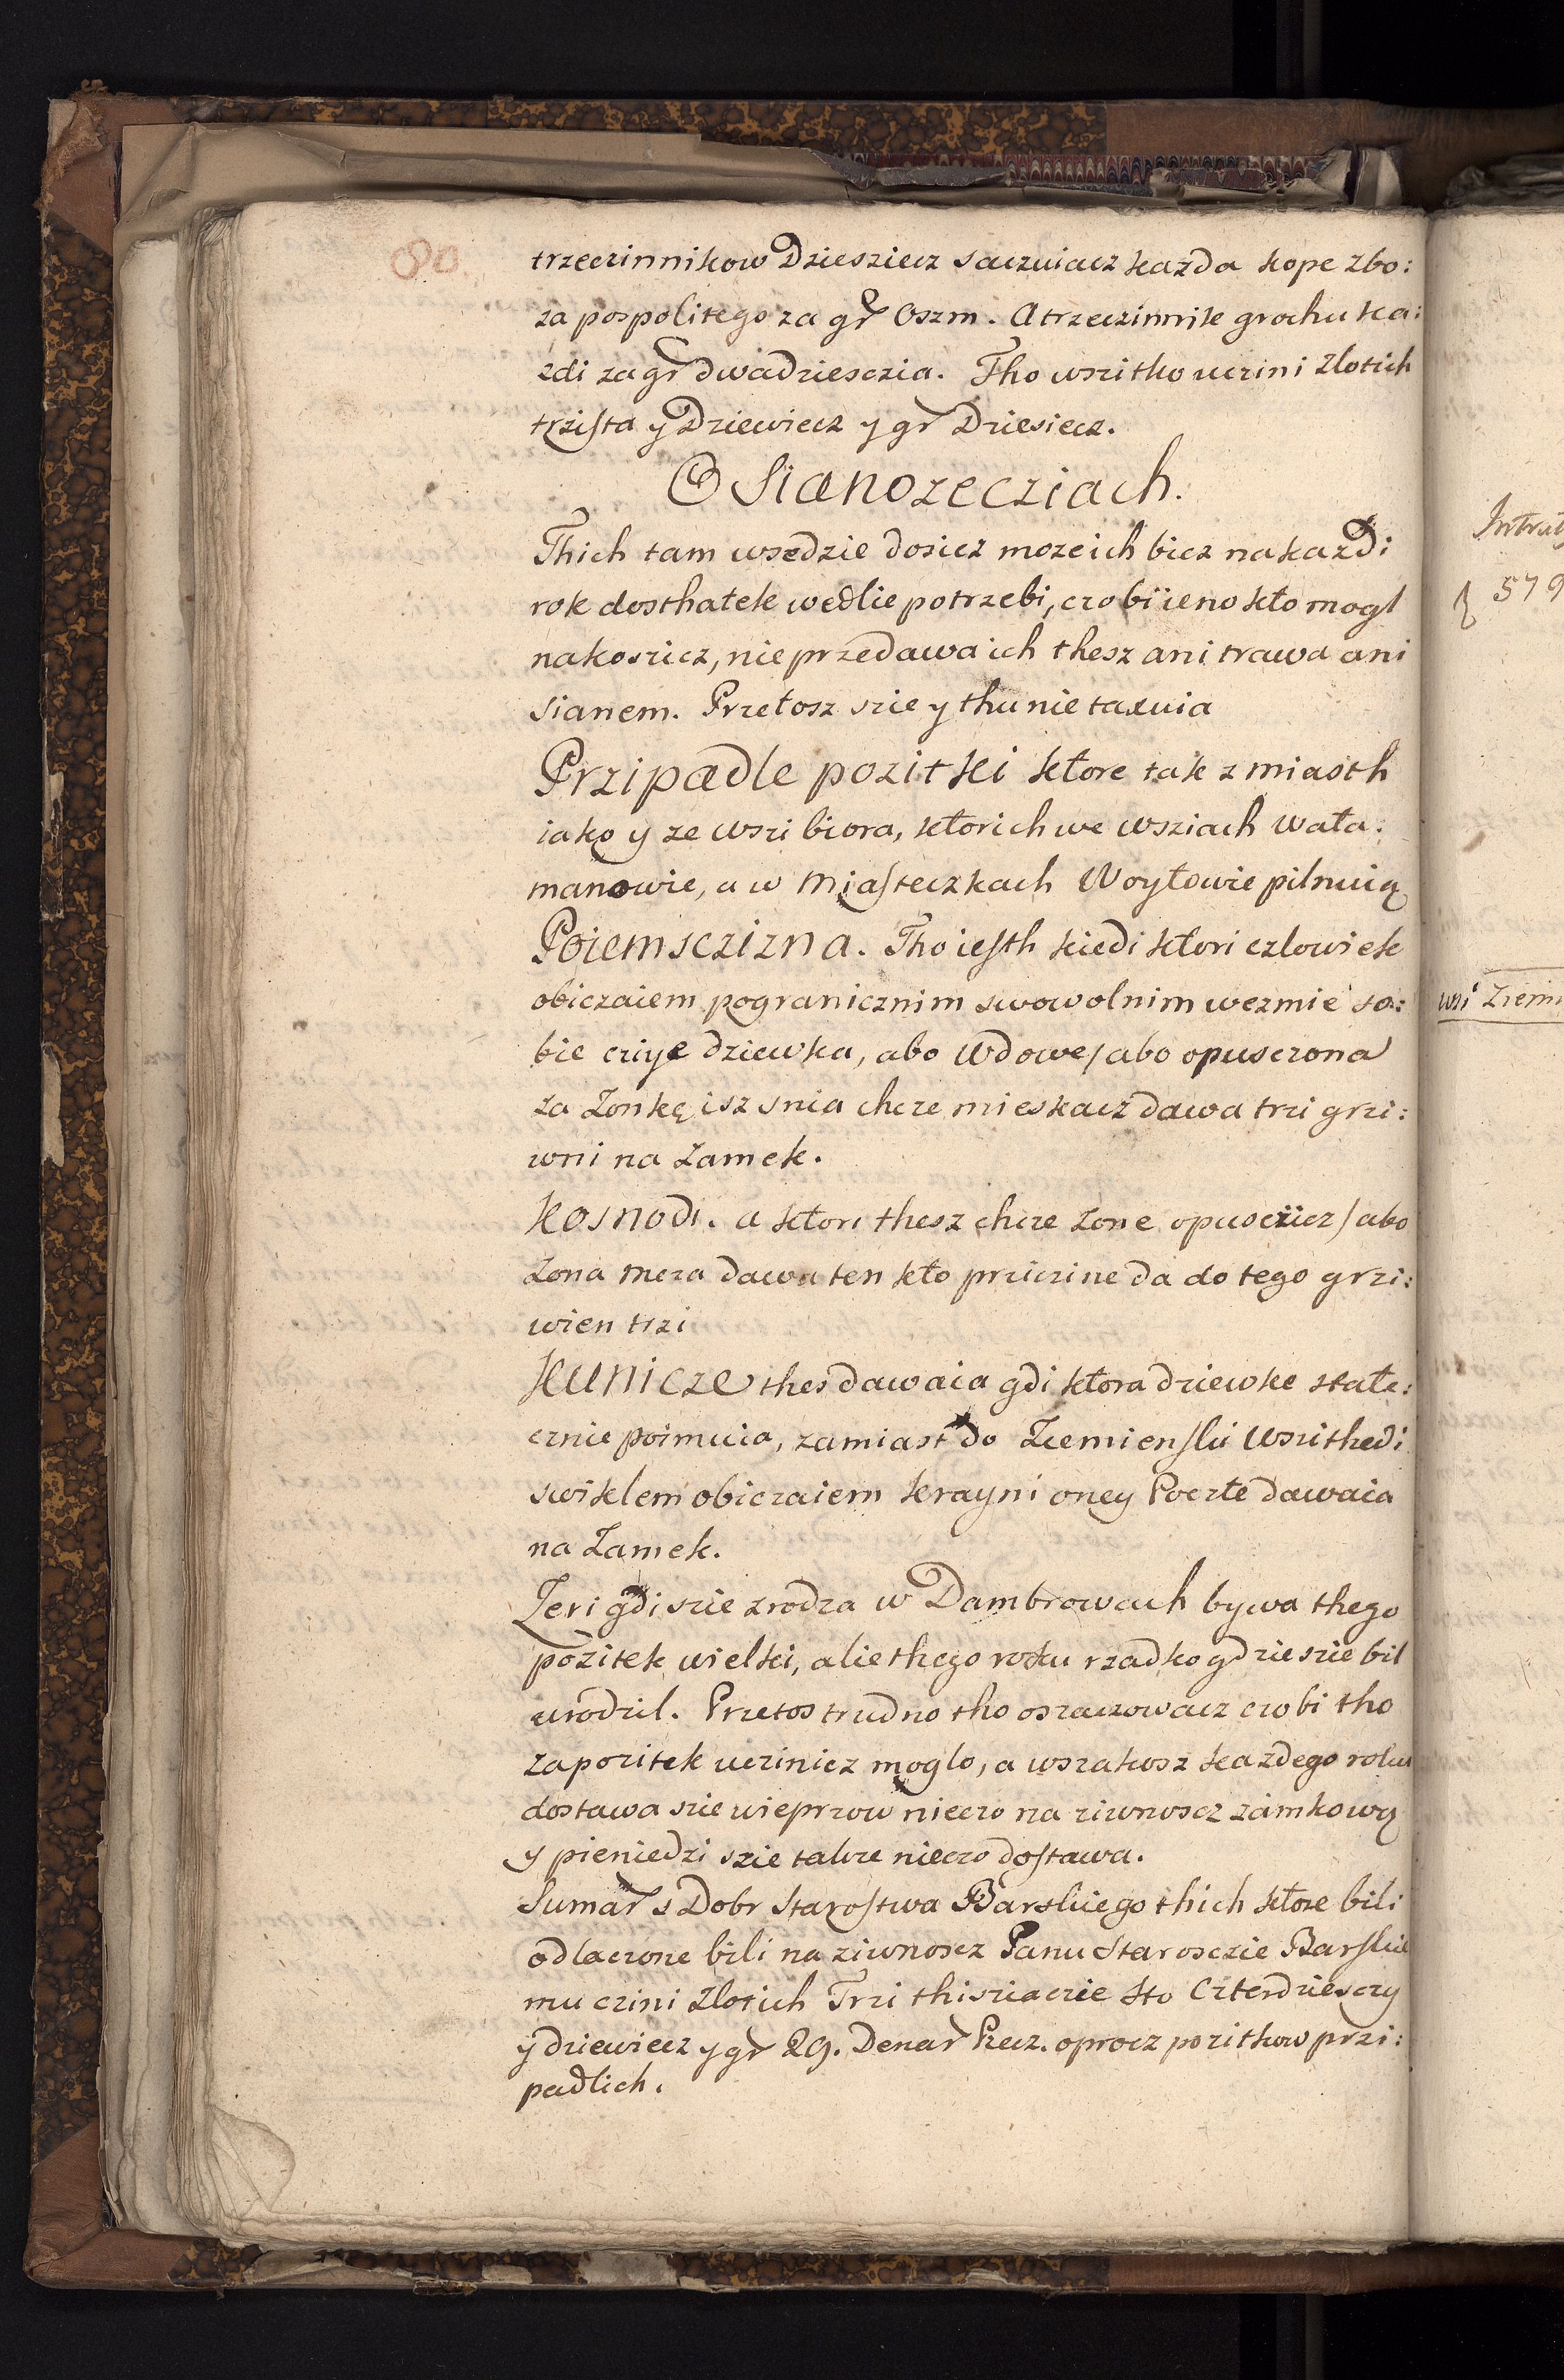 80.
trzeczinnikow Dziesziecz saczuiacz kazda kope zbo:
za pospolitego za gr Oszm. A trzeczinnik grochu ka:
zdi za gr dwadziesczia. Tho wszitko uczini Zlotich
trzista y Dziewiecz y gr Dziesiecz.
O Sianozecziach.
Thich tam wsedzie dosicz moze ich bicz na kazdi
rok dosthatek wedlie potrzebi, czo bi ieno kto mogl
nakosicz, nie przedawa ich thesz ani trawa ani
sianem. Przetosz szie y thu nie taxuia
Przipadle pozitki ktore tak z miasth
iako y ze wszi biora, ktorich we wsziach Wata:
manowie, a w Miasteczkach Woytowie pilnuią
Poiemsczizna. Tho iesth kiedi ktori czlowiek
obiczaiem pogranicznim swowolnim wezmie so:
bie cziye dziewka, abo Wdowe/ abo opusczona
za Zonkę isz snia chcze mieskacz dawa trzi grzi:
wni na Zamek.
Kosnodi. a ktori thesz chcze Zone opuscicz/ abo
Zona meza dawa ten kto prziczine da do tego grzi:
wien trzi
Kunicze thes dawaia gdi ktora dziewke state:
cznie poimuia, zamiast do Ziemienski Wszithedi
swiklem obiczaiem krayni oney Poczte dawaia
na Zamek.
Zeri gdi szie zrodza w Dambrowach bywa thego
pozitek wielki, alie thego roku rzadko gdzie szie bil
urodzil. Przetos trudno tho oszaczowacz czo bi tho
za pozitek uczinicz moglo, a wszakosz kazdego roku
dostawa szie wieprzow nieczo na ziwnoscz zamkową
y pieniedzi szie takze nieczo dostawa.
Sumar s Dobr Starostwa Barskiego thich ktore bili
odlaczone bili na ziwnoscz Panu Starosczie Barskie
mu czini Zlotich Trzi thisziaczie Sto Czterdziesczy
y dziewiecz y gr 29. Denar Piecz. oprocz pozitkow przi:
padlich.
579